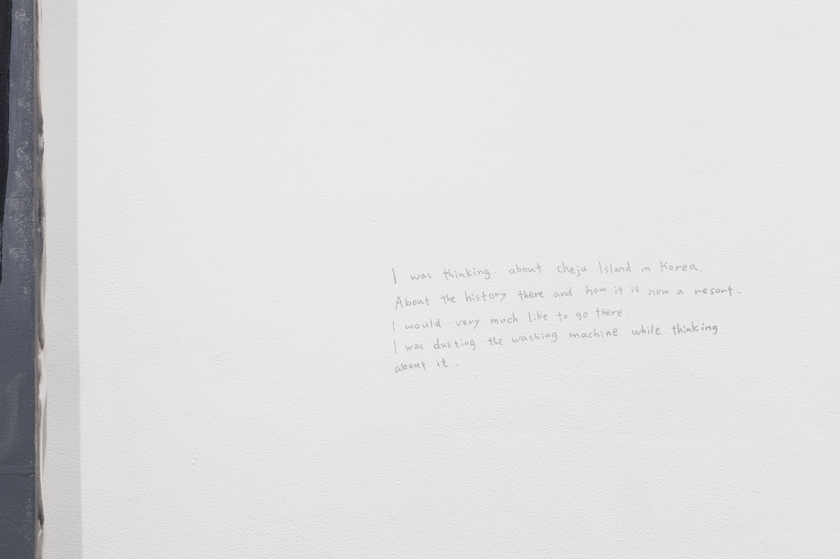 I was thinking about cheju Island in Korea.
About the history there and how it is now a resort.
I would very much like to go there.
I was dusting the washing machine while thinking
about it.